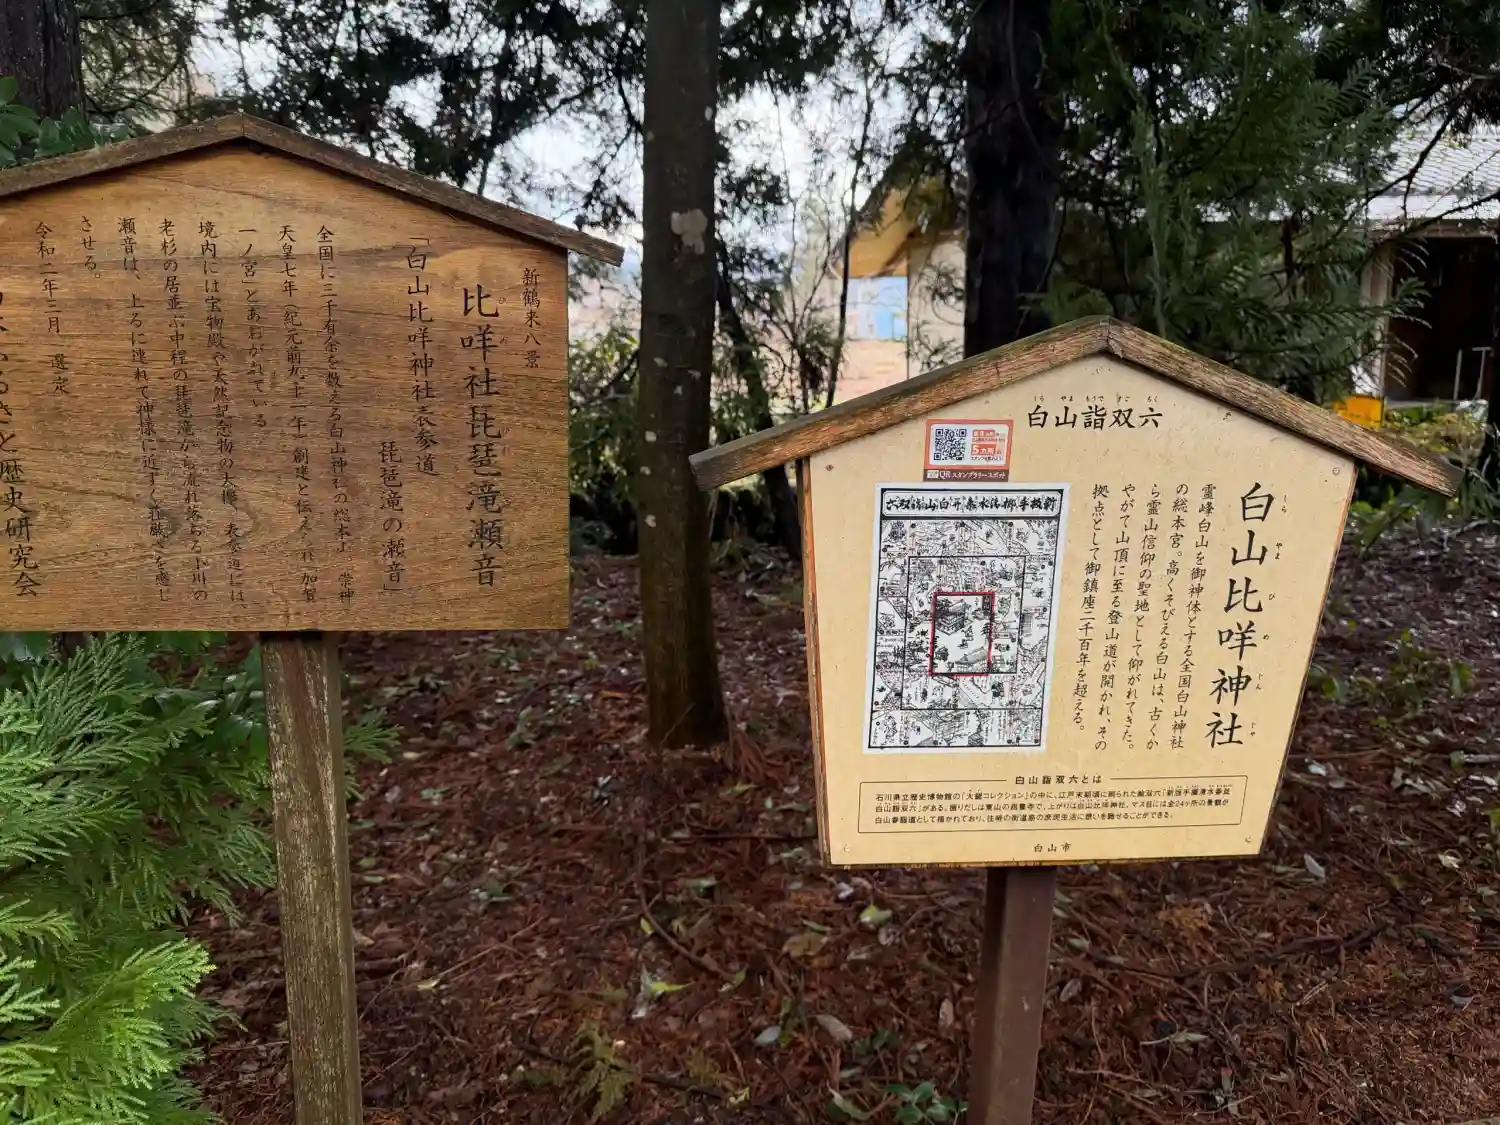 新鶴来八景
比咩社琵琶滝瀬音
ひめ
びわ
「白山比咩神社表参道
琵琶滝の瀬音」
全国に三千有余を数える白山神社の総本山。崇神
天皇七年(紀元前九十一年)創建と伝えられ「加賀
一ノ宮」とあおがれている
境内には宝物殿や天然記念物の大欅、表参道には、
老杉の居並ぶ中程の琵琶滝から流れ落ちる小川の
瀬音は、上るに連れて神様に近ずく荘厳さを感じ
させる。
令和二年三月 選定
ふるさと歴史研究会
しら やま もうで すご ろく
白山詣双六
5カ所
QRスタンプラリースポット
しら やま ひ め じん じゃ
白山比咩神社
霊峰白山を御神体とする全国白山神社
の総本宮。高くそびえる白山は、古くか
ら霊山信仰の聖地として仰がれてきた。
やがて山頂に至る登山道が開かれ、その
拠点として御鎮座二千百年を超える。
白山詣双六とは
石川県立歴史博物館の「大鋸コレクション」の中に、江戸末期頃に刷られた絵双六「新版手取清水参詣
白山詣双六」がある。振りだしは東山の四量寺で、上がりは白山比咩神社。マス目には全24ヶ所の景観が
白山参詣道として描かれており、往時の街道筋の庶民生活に想いを馳せることができる。
白山市